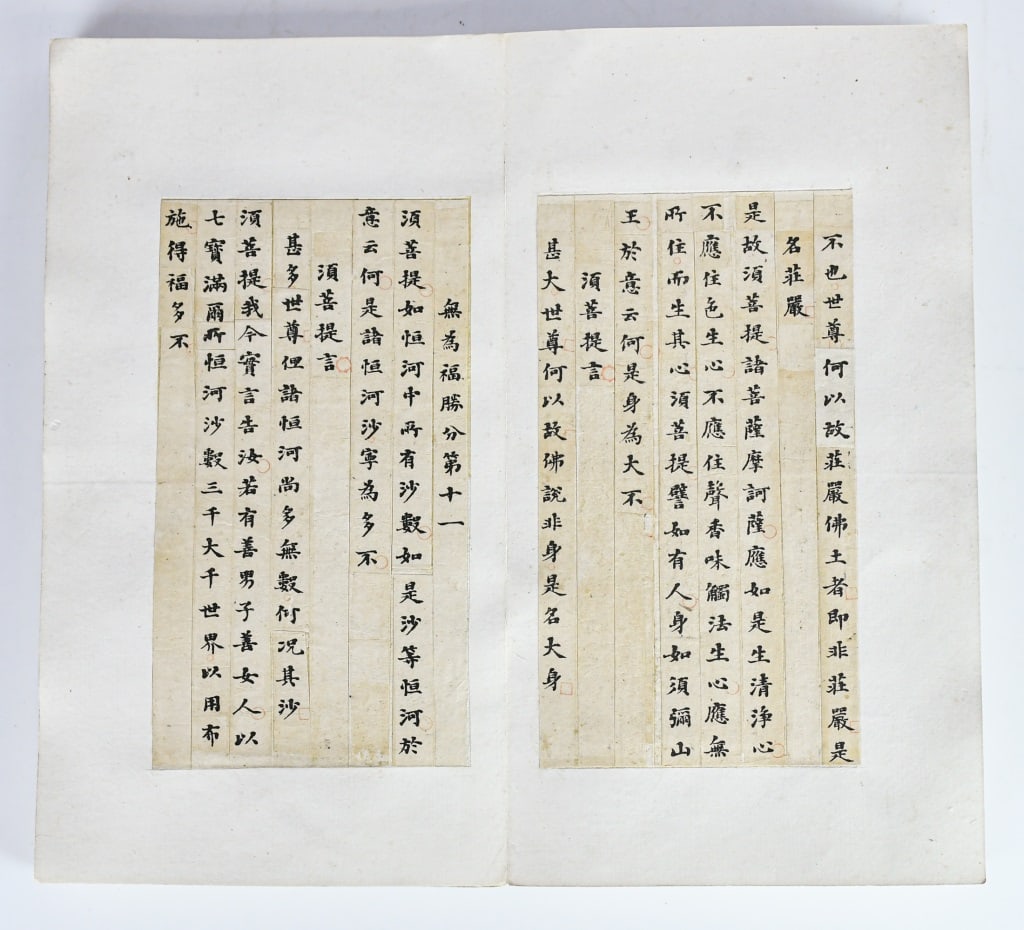 不也世尊何以故莊嚴佛土者即非莊嚴是
名莊嚴
是故須菩提諸菩薩摩訶薩應如是生清淨心
不應住色生心不應住聲香味觸法生心應無
所住而生其心須菩提譬如有人身如須彌山
王於意云何是身為大不
須菩提言
甚大世尊何以故佛說非身是名大身
無為福勝分第十一
須菩提如恒河中所有沙數如是沙等恒河於
意云何是諸恒河沙寧為多不
須菩提言
甚多世尊但諸恒河尚多無數何況其沙
須菩提我今實言告汝若有善男子善女人以
七寶滿爾所恒河沙數三千大千世界以用布
施得福多不